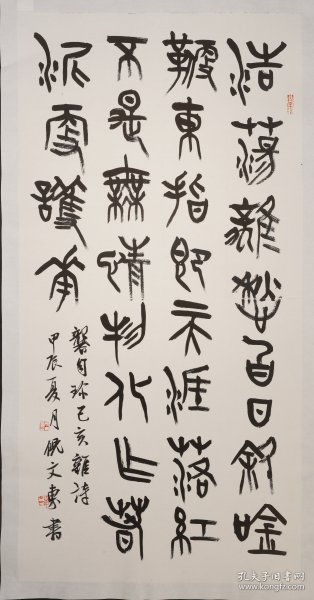 浩蕩離愁白日斜吟
鞭東指即天涯落紅
不是無情物化作春
泥更護花
龔自珍己亥雜詩
甲辰夏月倪文東書
孔夫子旧书网
www.kongfz.com